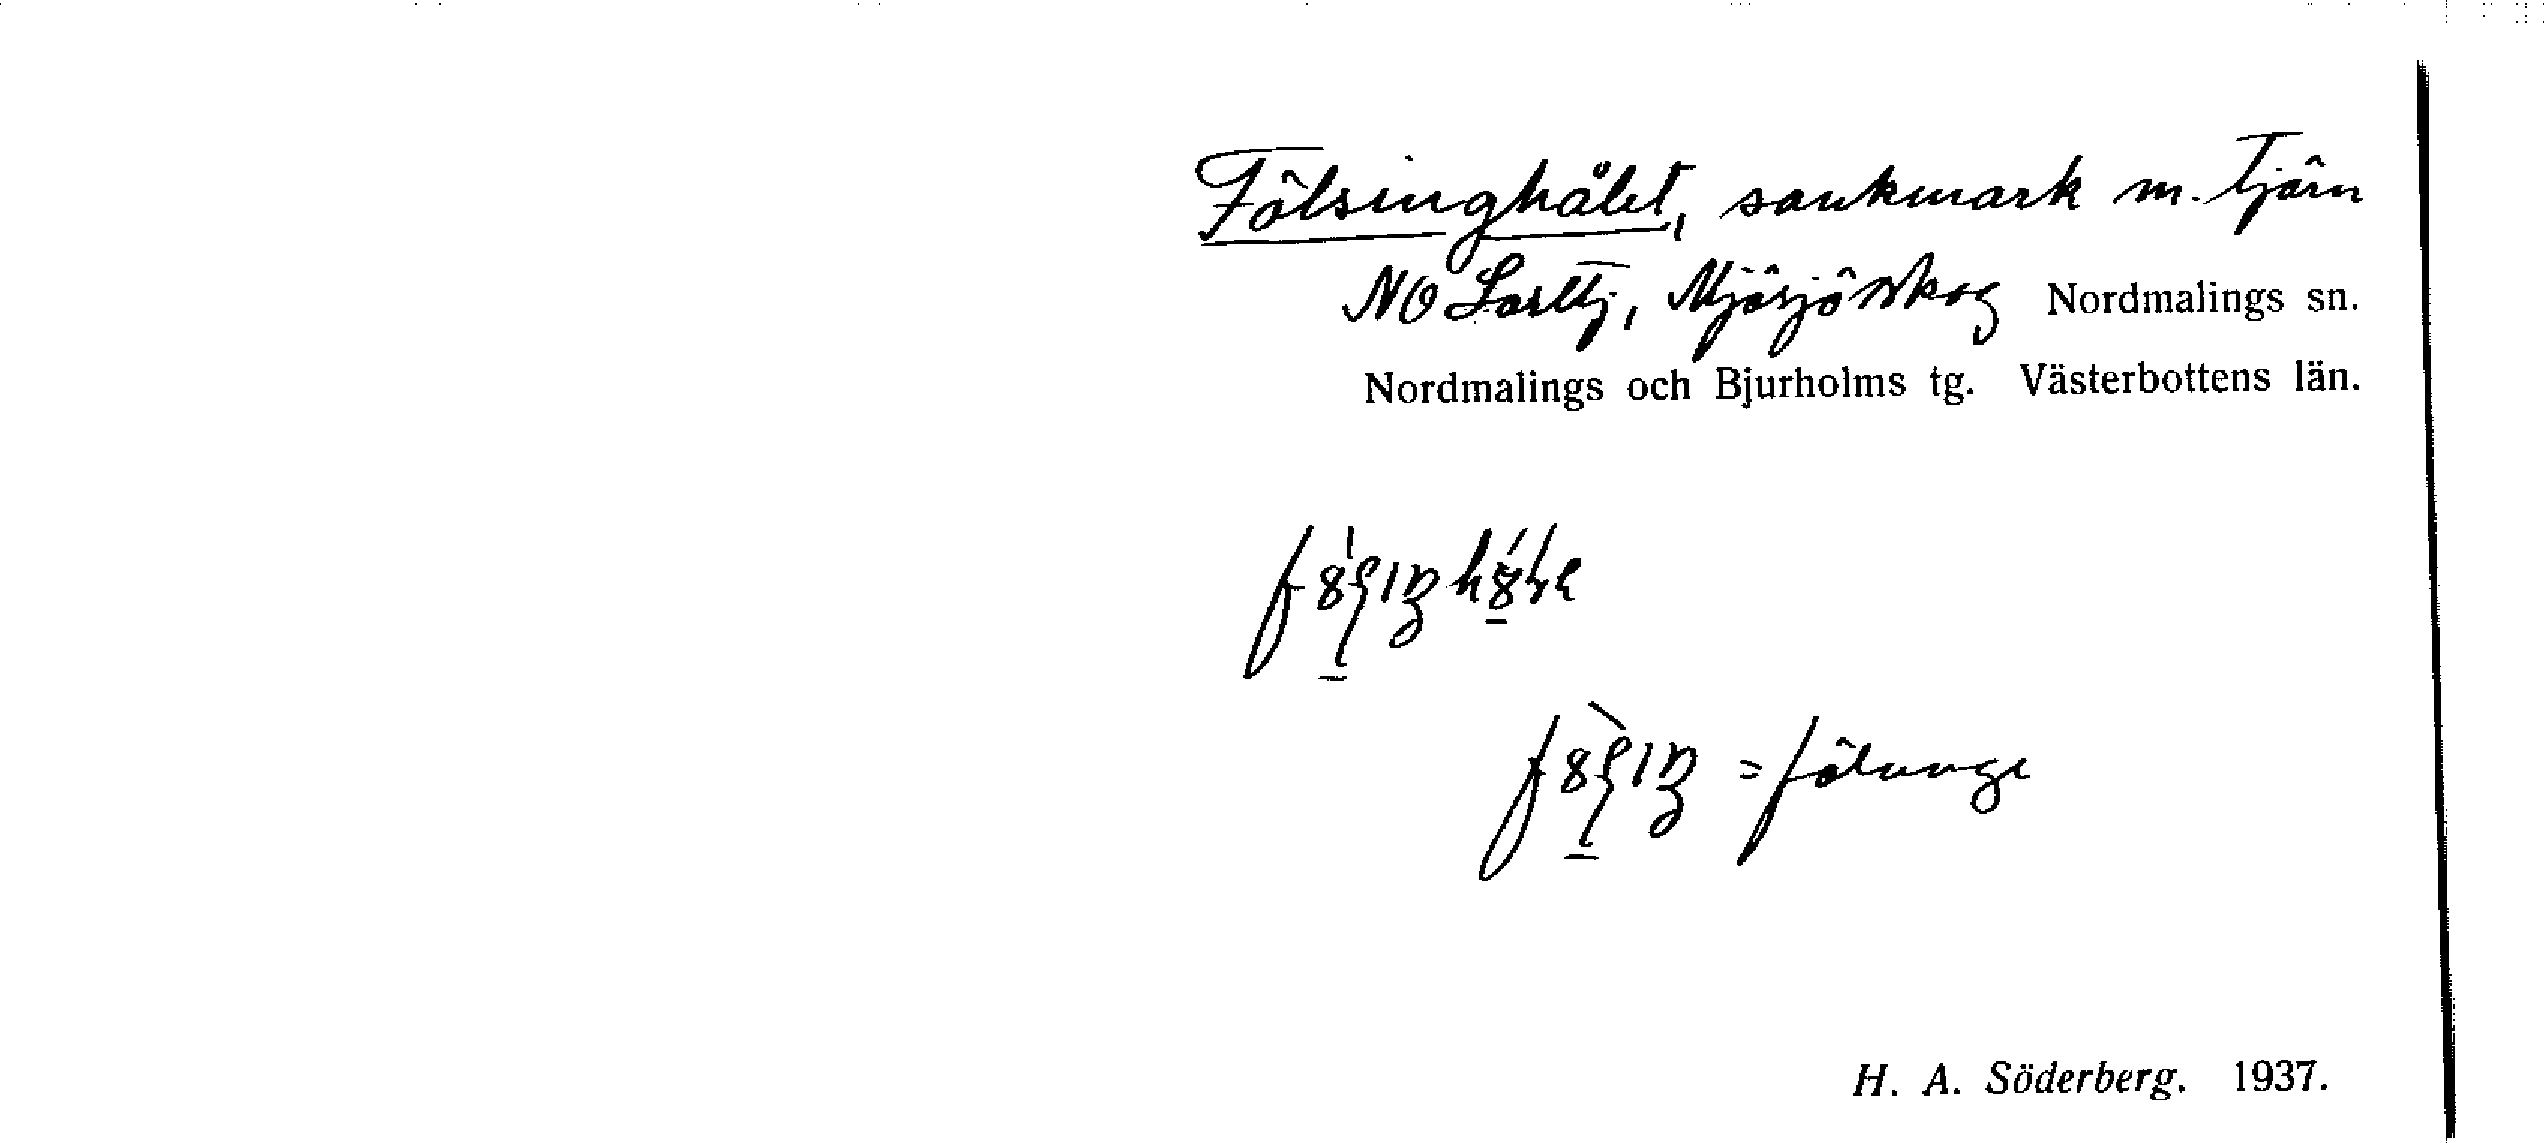 Fölsinghålet, sankmark m. tjärn
NO Lasttj, Mjösjöskog Nordmalings sn.
Nordmalings och Bjurholms tg. Västerbottens län.
= fölunge
H. A. Söderberg. 1937.